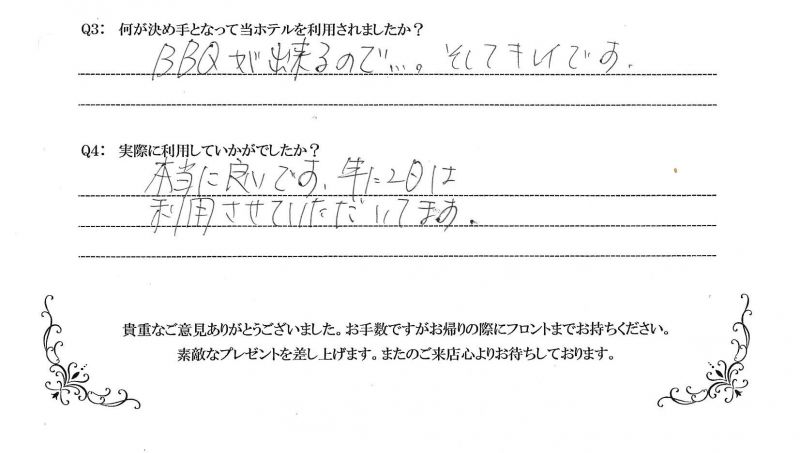 Q3: 何が決め手となって当ホテルを利用されましたか？
BBQが出来るので…。そしてキレイです.
Q4: 実際に利用していかがでしたか？
本当に良いです. 年に2日は
利用させていただいてます.
貴重なご意見ありがとうございました。お手数ですがお帰りの際にフロントまでお持ちください。
素敵なプレゼントを差し上げます。またのご来店心よりお待ちしております。